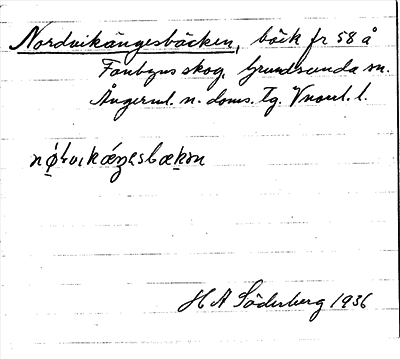 Nordvikängesbäcken, bäck fr 58 å
Fanbyns skog, Grundsunda sn.
Ångerml. n. doms. Tg. Vnorrl. l.
H A Söderberg 1936